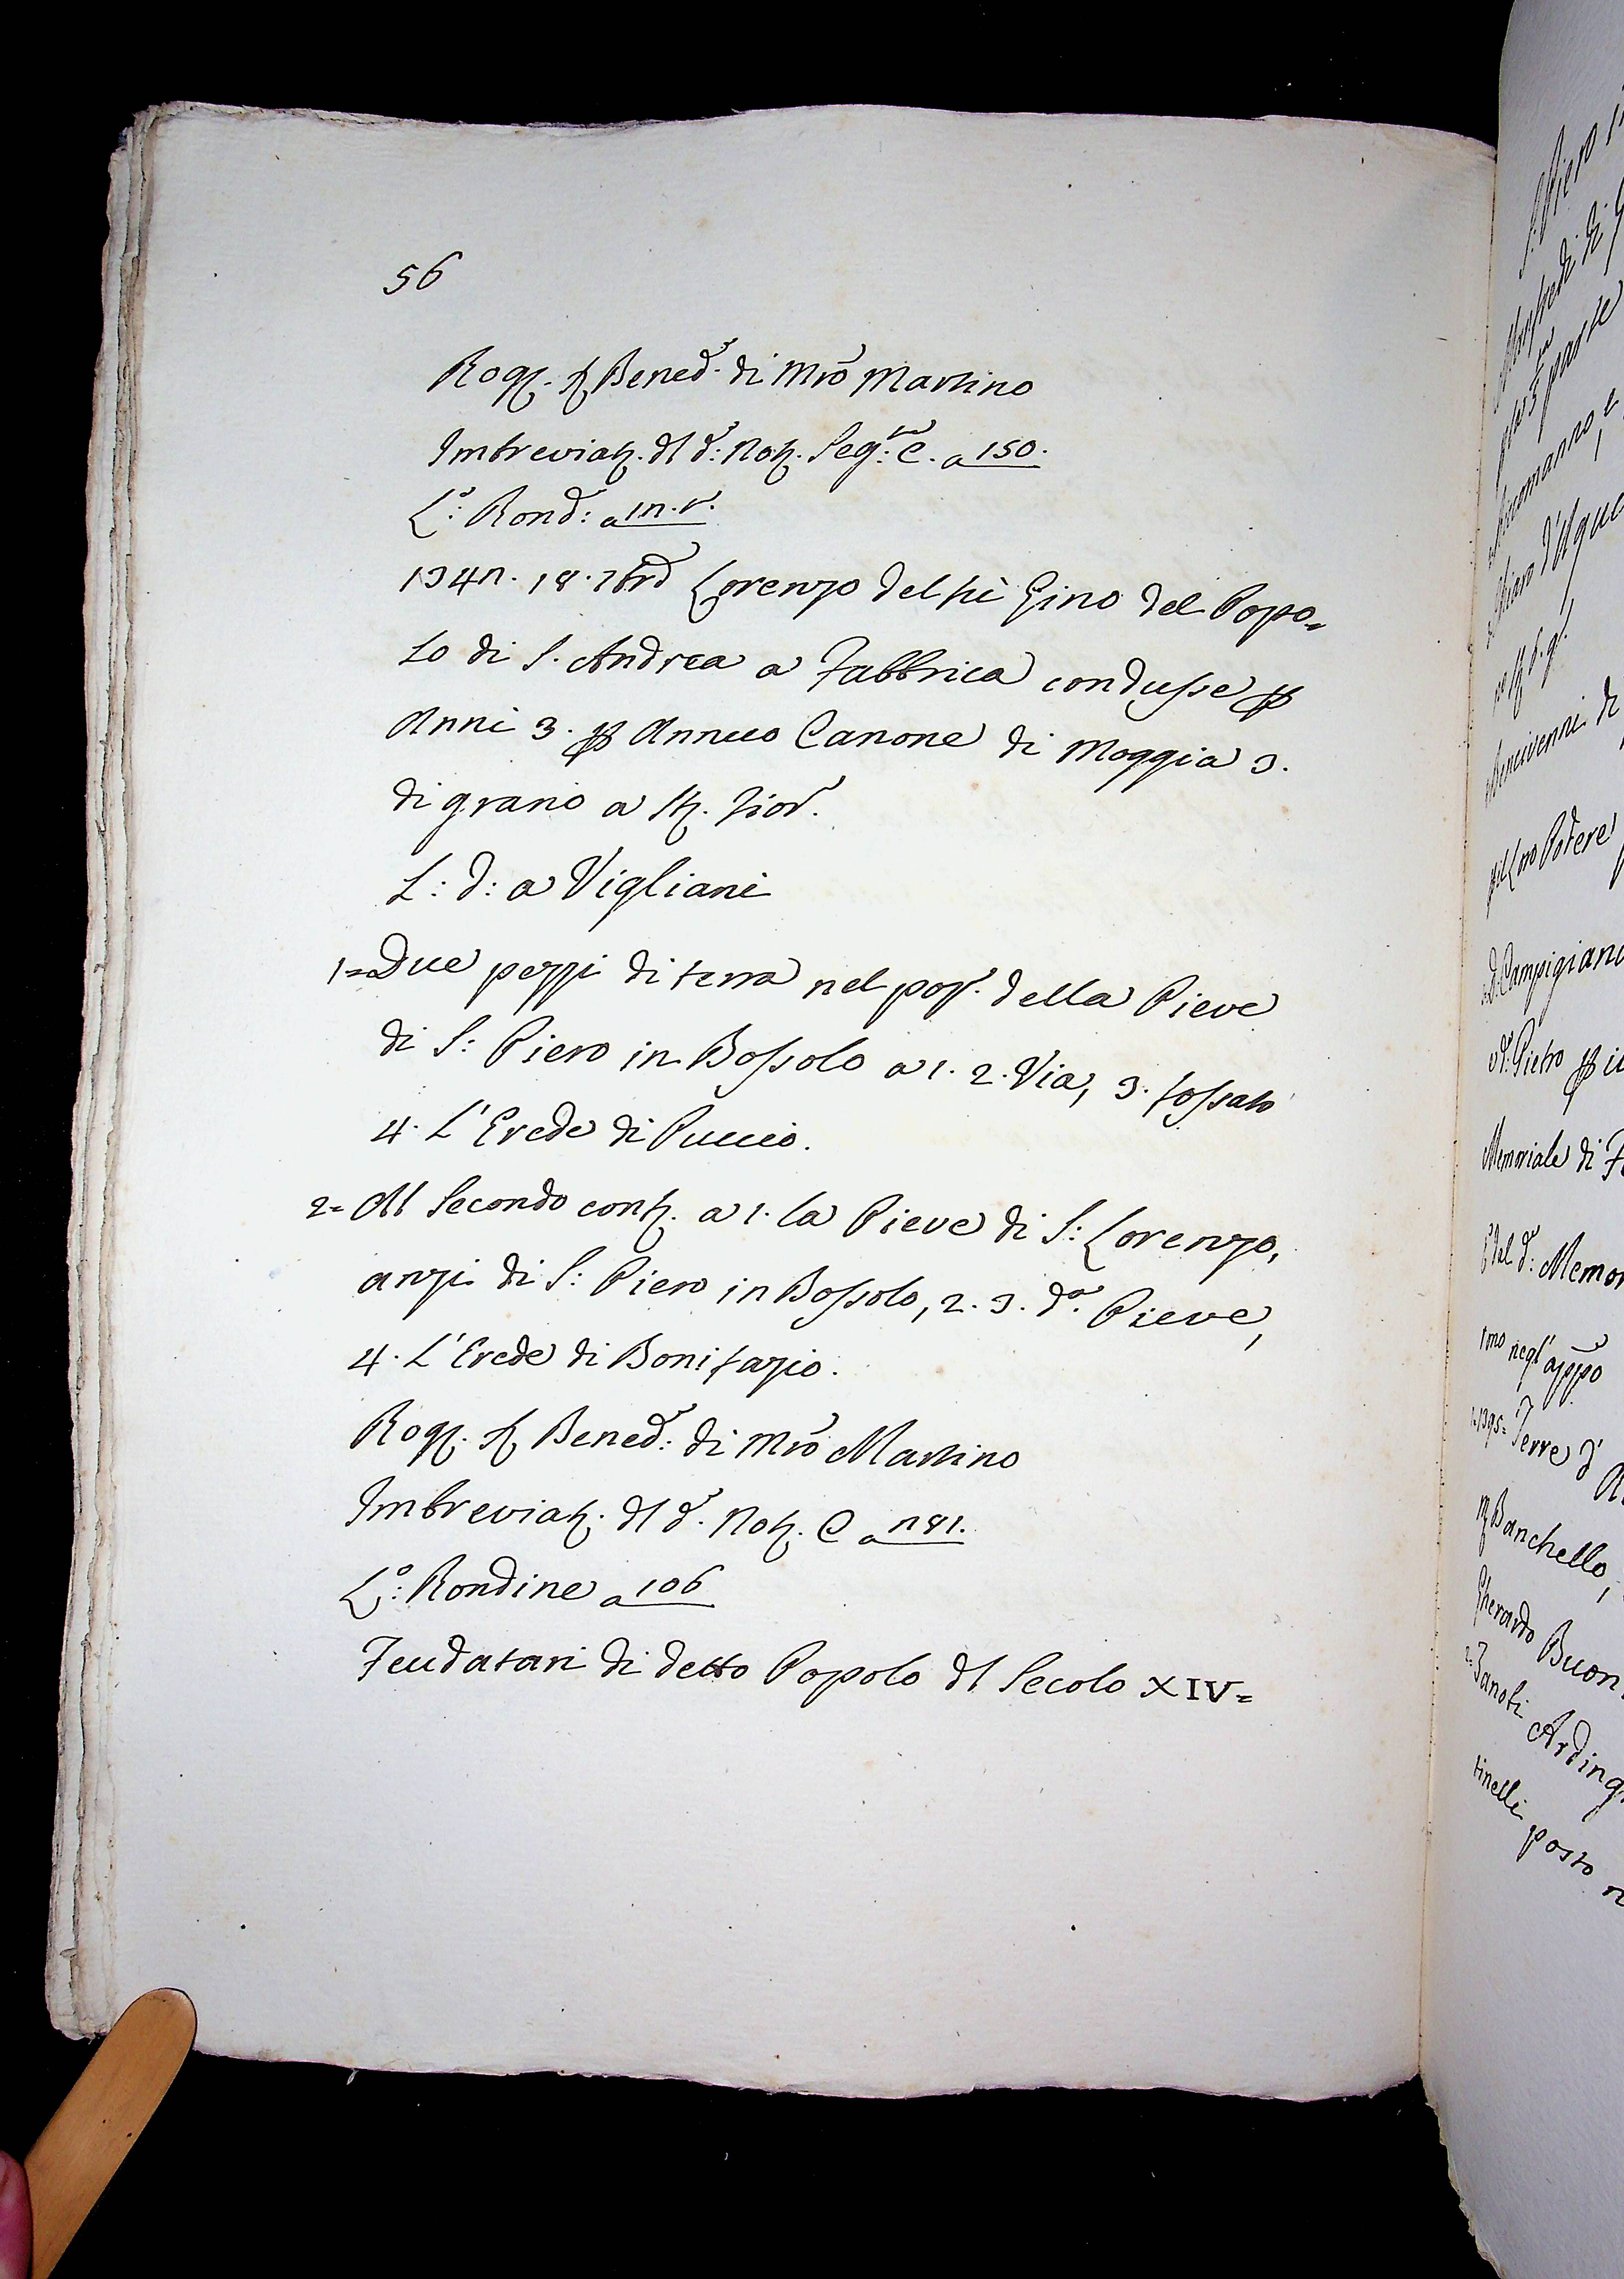 56
Rog. f Bened.° di Mrõ Martino
Imbreviat. dl d.° Not. Seg.te C. a 150.
L.°: Rond: a 1n.r.
134n. 18. 7brẽ Lorenzo del fù Gino del Popo=
lo di S. Andrea a Fabbrica condusse p
Anni 3. p Annuo Canone di Moggia 3.
di grano a St. Fior.°
L: d: a Vigliani
1= Due pezzi di terra nel pop.° della Pieve
di S: Piero in Bossolo a 1. 2. Via, 3. fossato
4. L'Erede di Puccio.
2= Al Secondo conf. a 1. la Pieve di S: Lorenzo,
anzi di S: Piero in Bossolo, 2. 3. d.a Pieve,
4. L'Erede di Bonifazio.
Rog. f Bened.°: di Mrõ Martino
Imbreviat. dl d.° Not. C a n81.
L.°: Rondine a 106
Feudatari di detto Popolo dl Secolo XIV=
Benivenni di
Podere
Campigiano
Pietro p
Memoriale di
dal d.°: Memor
negl'
Terre d
Banchello,
Gherardo Buon
Zanobi Arding
tinelli posto n